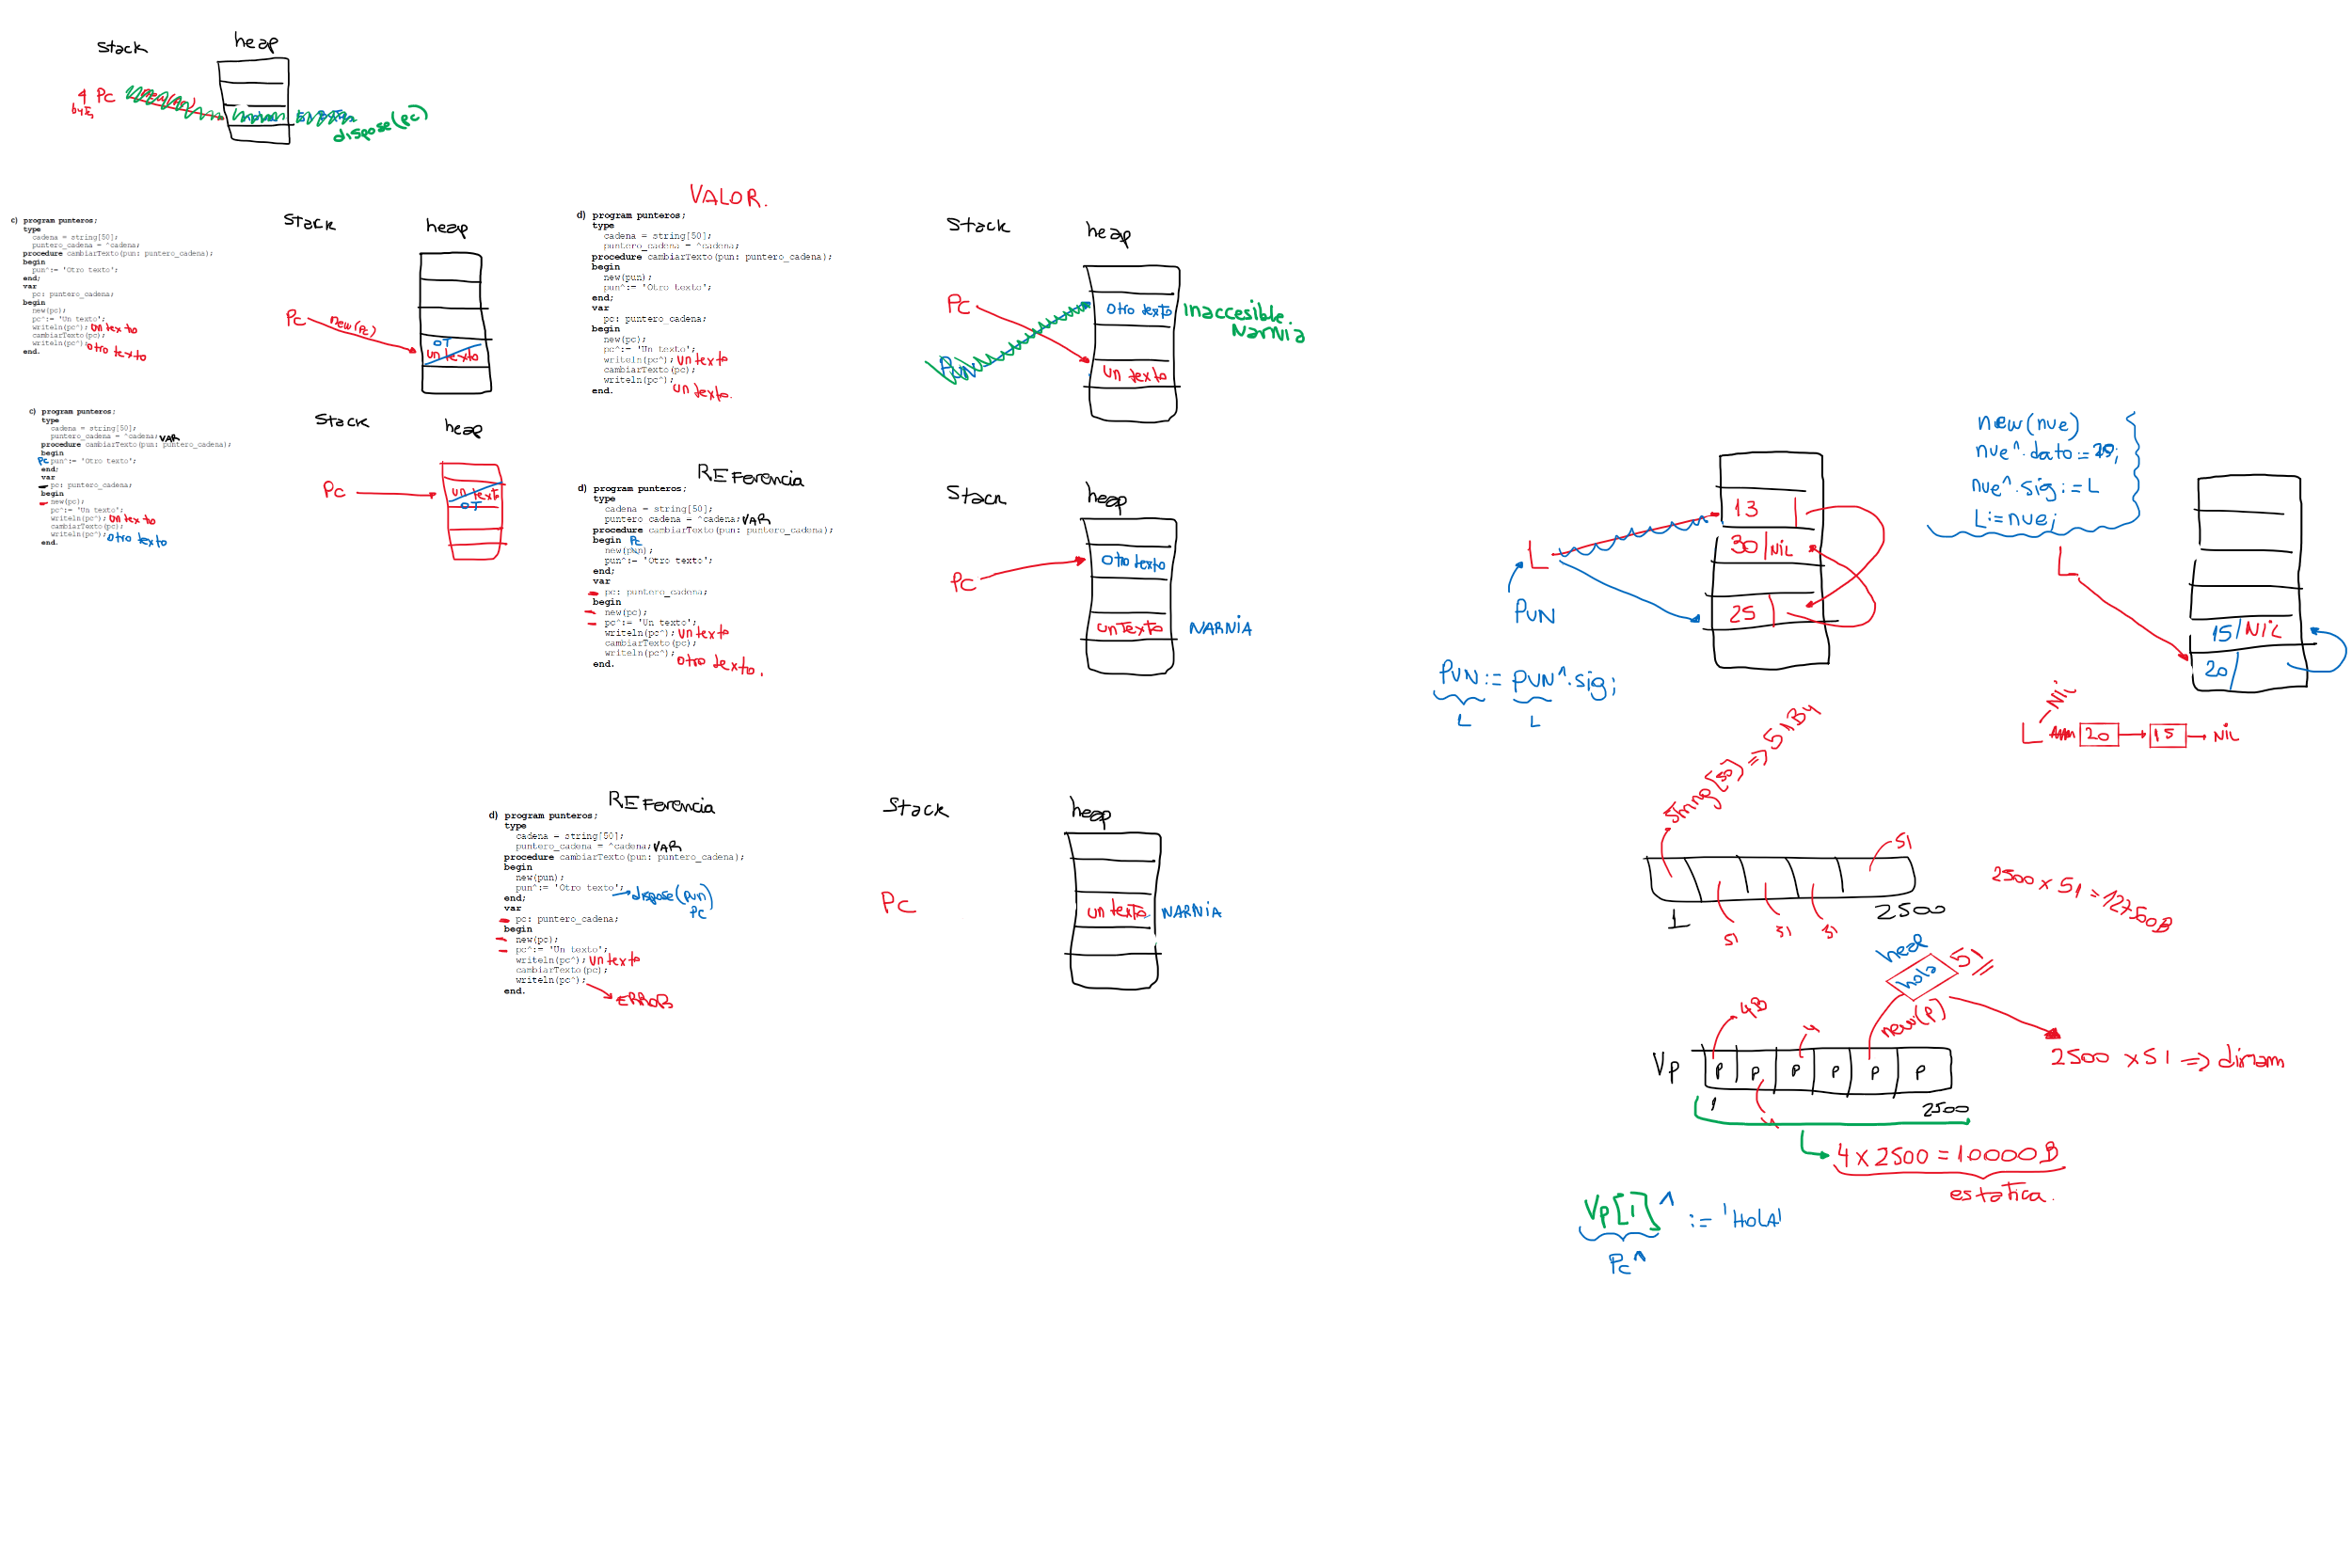 stack
heap
4 PC
bytes
dispose(pc)
c) program punteros;
type
cadena = string[50];
puntero_cadena = ^cadena;
procedure cambiarTexto(pun: puntero_cadena);
begin
pun^:= 'Otro texto';
end;
var
pc: puntero_cadena;
begin
new(pc);
pc^:= 'Un texto';
writeln(pc^); un texto
cambiarTexto(pc);
writeln(pc^); otro texto
end.
Stack
heap
Pc new(pc)
OT
un texto
c) program punteros;
type
cadena = string[50];
puntero_cadena = ^cadena; VAR
procedure cambiarTexto(pun: puntero_cadena);
begin
Pc pun^:= 'Otro texto';
end;
var
pc: puntero_cadena;
begin
new(pc);
pc^:= 'Un texto';
writeln(pc^); un texto
cambiarTexto(pc);
writeln(pc^); otro texto
end.
Stack
heap
Pc
un texto
OT
VALOR.
d) program punteros;
type
cadena = string[50];
puntero_cadena = ^cadena;
procedure cambiarTexto(pun: puntero_cadena);
begin
new(pun);
pun^:= 'Otro texto';
end;
var
pc: puntero_cadena;
begin
new(pc);
pc^:= 'Un texto';
writeln(pc^); un texto
cambiarTexto(pc);
writeln(pc^);
end. un texto.
Stack
heap
Pc
Otro texto
Inaccesible
Narnia
Pun
un texto
REFerencia
d) program punteros;
type
cadena = string[50];
puntero_cadena = ^cadena; VAR
procedure cambiarTexto(pun: puntero_cadena);
begin Pc
new(pun);
pun^:= 'Otro texto';
end;
var
pc: puntero_cadena;
begin
new(pc);
pc^:= 'Un texto';
writeln(pc^); un texto
cambiarTexto(pc);
writeln(pc^); otro texto.
end.
Stack
heap
Otro texto
Pc
un Texto NARNIA
REFerencia
d) program punteros;
type
cadena = string[50];
puntero_cadena = ^cadena; VAR
procedure cambiarTexto(pun: puntero_cadena);
begin
new(pun);
pun^:= 'Otro texto'; dispose(pun)
Pc
end;
var
pc: puntero_cadena;
begin
new(pc);
pc^:= 'Un texto';
writeln(pc^); un texto
cambiarTexto(pc);
writeln(pc^);
end. ERROR
Stack
heap
Pc
un texto NARNIA
13
30/NIL
25
L
PUN
PUN := PUN^.sig;
L L
new(nue)
nue^.dato := 20;
nue^.sig := L
L:=nue;
L
15/NIL
20/
NiL
L 20 15 NiL
String[50] => 51By
51
1 2500
51 51 51
2500 x 51 = 127500B
heap
hola 51
new(p)
4B
4
Vp P P P P P P
1 2500
4
2500 x 51 => dinam
4 x 2500 = 10000B
estatica.
Vp[1]^ := 'HOLA'
Pc^